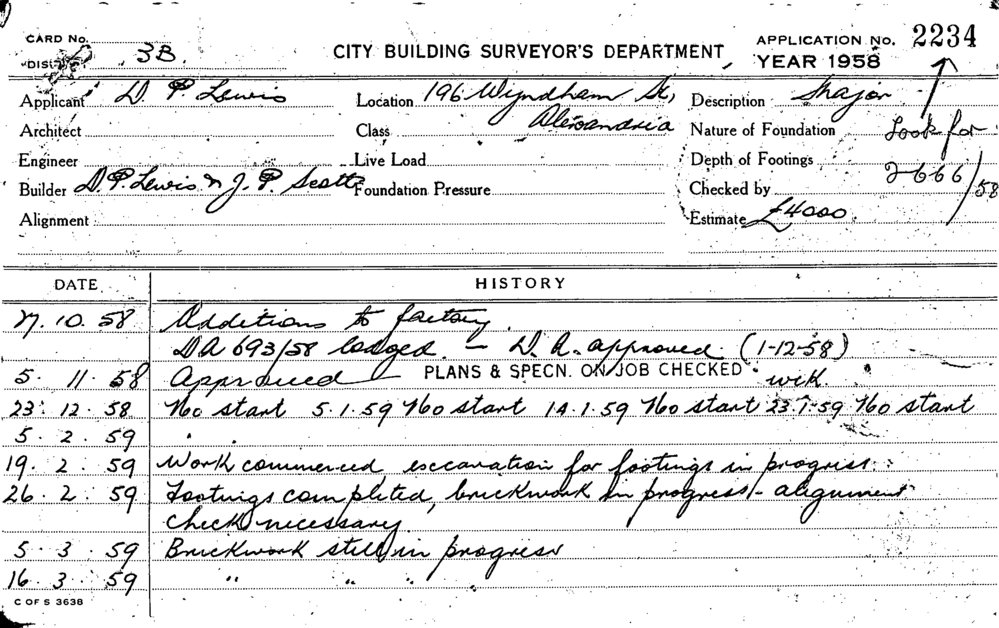 CARD No.
DIST. 3B.
CITY BUILDING SURVEYOR'S DEPARTMENT
APPLICATION No. 2234
YEAR 1958
Applicant D. P. Lewis
Location 196 Wyndham St,
Alexandria
Description Major
Architect
Class
Nature of Foundation
Look for
2666/58
Engineer
Live Load
Depth of Footings
Builder D. P. Lewis & J. P. Scott
Foundation Pressure
Checked by
Alignment
Estimate £4000
DATE HISTORY
27. 10. 58 Additions to factory
DA 693/58 lodged. - D. A. approved (1-12-58)
5. 11. 58 Approved PLANS & SPECN. ON JOB CHECKED
23. 12. 58 No start 5.1.59 No start 14.1.59 No start 23.1.59 No start
5. 2. 59 " "
19. 2. 59 Work commenced excavation for footings in progress
26. 2. 59 Footings completed, brickwork in progress - alignment
check necessary
5. 3. 59 Brickwork still in progress
16. 3. 59 " " "
C OF S 3638